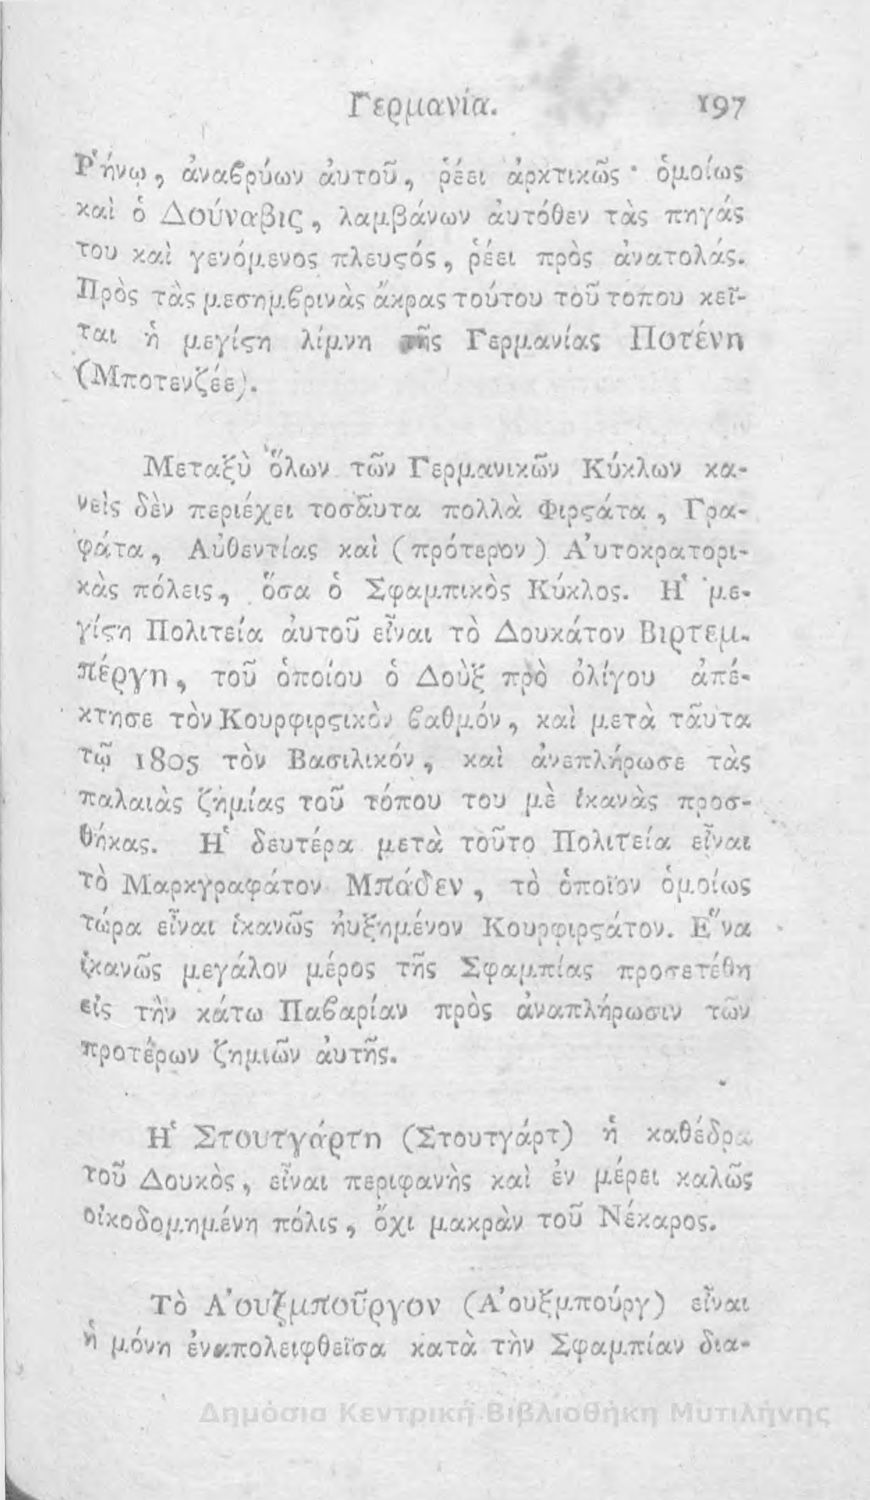 Γερμανία. 197
Ῥήνῳ, ἀναϐρύων ἀυτοῦ, ῥέει ἀρκτικῶς· ὁμοίως
καὶ ὁ Δούναβις, λαμβάνων ἀυτόθεν τὰς πηγάς
του καὶ γενόμενος πλευϛός, ῥέει πρὸς ἀνατολάς.
Πρὸς τὰς μεσημϐρινὰς ἄκρας τούτου τοῦ τοπου κεῖ-
ται ἡ μεγίϛη λίμνη τῆς Γερμανίας Ποτένη
(Μποτενζέε).
Μεταξὺ ὅλων τῶν Γερμανικῶν Κύκλων κα-
νεὶς δὲν περιέχει τοσᾶυτα πολλὰ Φιρϛάτα, Γρα-
φάτα, Αὐθεντίας καὶ (πρότερον) Ἀυτοκρατορι-
κὰς πόλεις, ὅσα ὁ Σφαμπικὸς Κύκλος. Ἡ με-
γίϛη Πολιτεία ἀυτοῦ εἶναι τὸ Δουκάτον Βιρτεμ-
πέργη, τοῦ ὁποίου ὁ Δοὺξ πρὸ ὀλίγου ἀπέ-
κτησε τὸν Κουρφιρϛικὸν ϐαθμόν, καὶ μετὰ τᾶυτα
τῷ 1805 τὸν Βασιλικόν, καὶ ἀνεπλήρωσε τὰς
παλαιὰς ζημίας τοῦ τόπου του μὲ ἱκανὰς προσ-
θήκας. Ἡ δευτέρα μετὰ τοῦτο Πολιτεία εἶναι
τὸ Μαρκγραφάτον Μπάδεν, τὸ ὁποῖον ὁμοίως
τώρα εἶναι ἱκανῶς ἠυξημένον Κουρφιρϛάτον. Ἕνα
ἱκανῶς μεγάλον μέρος τῆς Σφαμπίας προσετέθη
εἰς τὴν κάτω Παϐαρίαν πρὸς ἀναπλήρωσιν τῶν
προτέρων ζημιῶν ἀυτῆς.
Ἡ Στουτγάρτη (Στουτγάρτ) ἡ καθέδρα
τοῦ Δουκὸς, εἶναι περιφανὴς καὶ ἐν μέρει καλῶς
οἰκοδομημένη πόλις, ὄχι μακρὰν τοῦ Νέκαρος.
Τὸ Ἀουξμποῦργον (Ἀουξμπούργ) εἶναι
ἡ μόνη ἐναπολειφθεῖσα κατὰ τὴν Σφαμπίαν δια-
Δημόσια Κεντρική Βιβλιοθήκη Μυτιλήνης